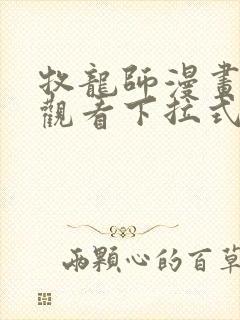 牧龍師漫畫
觀看下拉式
兩顆心的百草